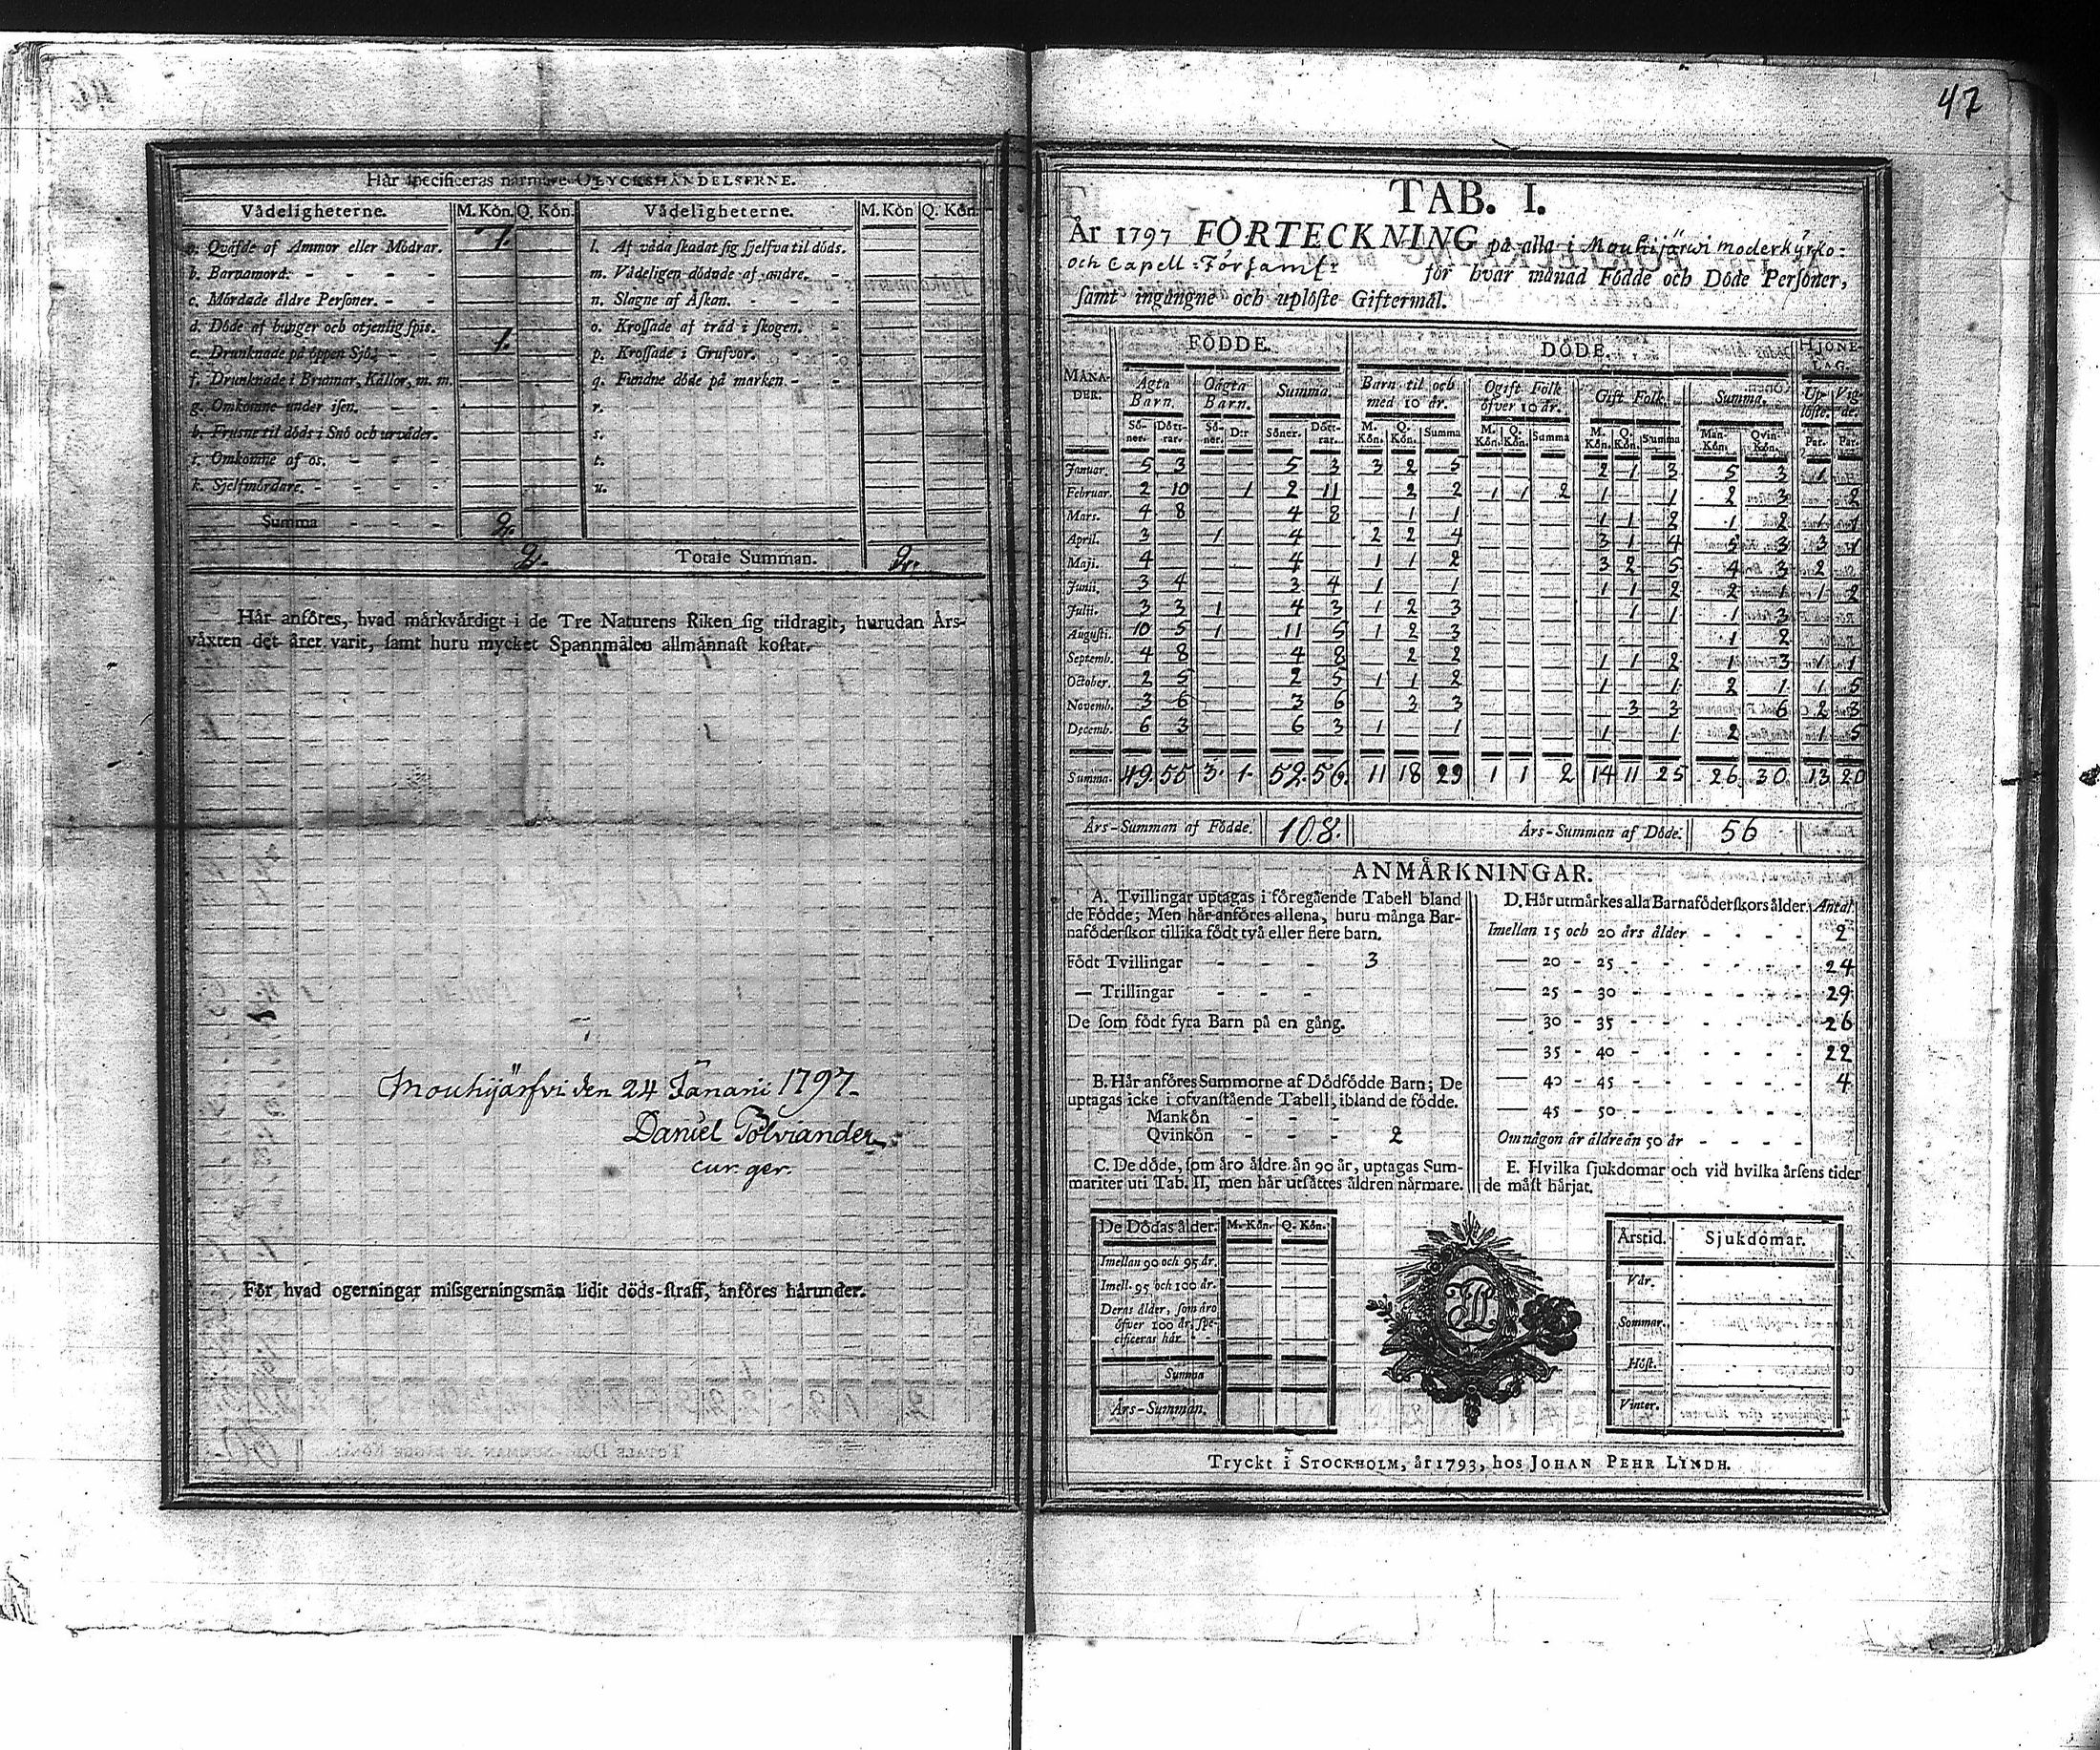 Här specificeras närmare OLYCKSHÄNDELSERNE.
Vådeligheterne. M. Kön. Q. Kön. Vådeligheterne. M. Kön Q. Kön
a. Qväfde af Ammor eller Mödrar. 1. l. Af våda skadat sig sjelfva til döds.
b. Barnamord. m. Vådeligen dödade af andre.
c. Mördade äldre Personer. n. Slagne af Åskan.
d. Döde af hunger och otjenlig spis. o. Krossade af träd i skogen.
e. Drunknade på öppen Sjö. 1. p. Krossade i Grufvor.
f. Drunknade i Brunnar, Källor, m. m. q. Fundne döde på marken
g. Omkomne under isen. r.
h. Frusne til döds i Snö och urväder. s.
i. Omkomne af os. t.
k. Sjelfmördare. u.
Summa 2.
2. Totale Summan. 2.
Här anföres, hvad märkvärdigt i de Tre Naturens Riken sig tildragit, hurudan Års-
växten det året varit, samt huru mycket Spannmålen allmännast kostat.
Mouhijärfvi den 24 Januarii 1797.
Daniel Polviander
cur. ger.
För hvad ogerningar missgerningsmän lidit döds-straff, anföres härunder.
47
TAB. I.
År 1797 FÖRTECKNING på alla i Mouhijärwi moderkyrko-
och Capell-Församl:r för hvar månad Födde och Döde Personer,
samt ingångne och uplöste Giftermål.
FÖDDE. DÖDE. HJONE-LAG.
MÅNA-DER. Ägta Barn. Oägta Barn. Summa. Barn til och med 10 år. Ogift Folk öfver 10 år. Gift Folk. Summa. Up-löste. Vig-de.
Sö-ner. Dött-rar. Sö-ner. D:r Söner. Dött-rar. M. Kön. Q. Kön. Summa M. Kön. Q. Kön. Summa M. Kön. Q. Kön. Summa Man-Kön. Qvin-Kön. Par. Par.
Januar. 5 3 5 3 3 2 5 2 1 3 5 3 1
Februar. 2 10 1 2 11 2 2 1 1 2 1 1 2 3 2
Mars. 4 8 4 8 1 1 1 1 2 1 2 1 1
April. 3 1 4 2 2 4 3 1 4 5 3 3 1
Maji. 4 4 1 1 2 3 2 5 4 3 2
Junii. 3 4 3 4 1 1 1 1 2 2 1 1 2
Julii. 3 3 1 4 3 1 2 3 1 1 1 3
Augusti. 10 5 1 11 5 1 2 3 1 2
Septemb. 4 8 4 8 2 2 1 1 2 1 3 1 1
October. 2 5 2 5 1 1 2 1 1 2 1 1 5
Novemb. 3 6 3 6 3 3 3 3 6 2 3
Decemb. 6 3 6 3 1 1 1 1 2 1 5
Summa. 49 55 3. 1. 52. 56. 11 18 29 1 1 2 14 11 25 26 30 13 20
Års-Summan af Födde. 108. Års-Summan af Döde. 56
ANMÄRKNINGAR.
A. Tvillingar uptagas i föregående Tabell bland
de Födde; Men här anföres allena, huru många Bar-
naföderskor tillika födt två eller flere barn.
Födt Tvillingar 3
— Trillingar
De som födt fyra Barn på en gång.
B. Här anföres Summorne af Dödfödde Barn; De
uptagas icke i ofvanstående Tabell, ibland de födde.
Mankön
Qvinkön 2
C. De döde, som äro äldre än 90 år, uptagas Sum-
mariter uti Tab. II, men här utsättes åldren närmare.
D. Här utmärkes alla Barnaföderskors ålder. Antal
Imellan 15 och 20 års ålder 2
— 20 - 25 24
— 25 - 30 29
— 30 - 35 26
— 35 - 40 22
— 40 - 45 4
— 45 - 50
Om någon är äldre än 50 år
E. Hvilka sjukdomar och vid hvilka årsens tider
de mäst härjat.
De Dödas ålder. M. Kön. Q. Kön.
Imellan 90 och 95 år.
Imell. 95 och 100 år.
Deras ålder, som äro
öfver 100 år, spe-
cificeras här.
Summa
Års-Summan.
Årstid. Sjukdomar.
Vår.
Sommar.
Höst.
Vinter.
Tryckt i STOCKHOLM, år 1793, hos JOHAN PEHR LINDH.